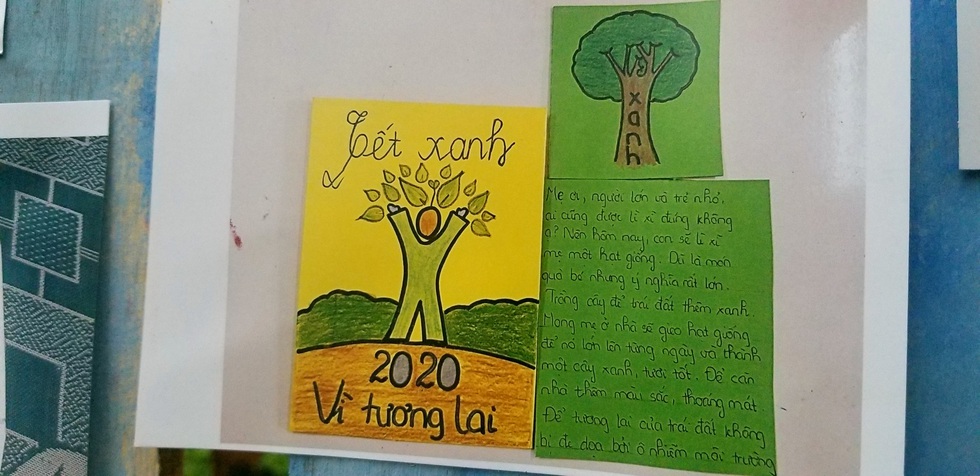 Tết xanh
2020
Vì tương lai
xanh
Mẹ ơi, người lớn và trẻ nhỏ,
ai cũng được lì xì đúng không
ạ? Nên hôm nay, con sẽ lì xì
mẹ một hạt giống. Dù là món
quà bé nhưng ý nghĩa rất lớn.
Trồng cây để trái đất thêm xanh.
Mong mẹ ở nhà sẽ gieo hạt giống
để nó lớn lên từng ngày và thành
một cây xanh, tươi tốt. Để căn
nhà thêm màu sắc, thoáng mát.
Để tương lai của trái đất không
bị đe dọa bởi ô nhiễm môi trường